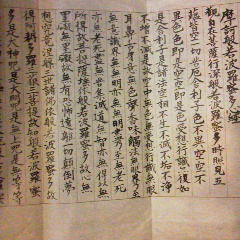 摩訶般若波羅蜜多心経
観自在菩薩行深般若波羅蜜多時照見五
蘊皆空度一切苦厄舎利子色不異空空不
異色色即是空空即是色受想行識亦復如
是舎利子是諸法空相不生不滅不垢不浄
不増不減是故空中無色無受想行識無眼
耳鼻舌身意無色声香味触法無眼界乃至
無意識界無無明亦無無明尽乃至無老死
亦無老死尽無苦集滅道無智亦無得以無
所得故菩提薩埵依般若波羅蜜多故心無
罣礙無罣礙故無有恐怖遠離一切顛倒夢
想究竟涅槃三世諸佛依般若波羅蜜多故
得阿耨多羅三藐三菩提故知般若波羅蜜
多是大神呪是大明呪是無上呪是無等等